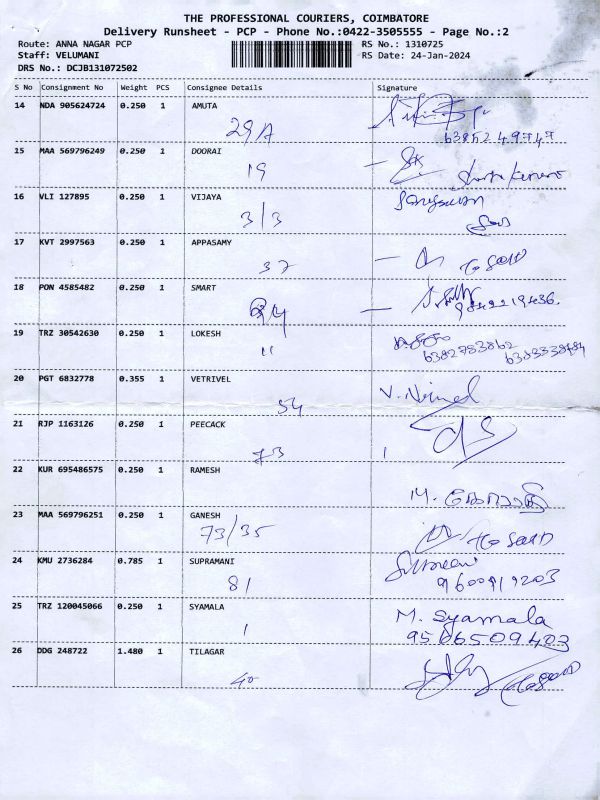 THE PROFESSIONAL COURIERS, COIMBATORE
Delivery Runsheet - PCP - Phone No.:0422-3505555 - Page No.:2
Route: ANNA NAGAR PCP
RS No.: 1310725
Staff: VELUMANI
RS Date: 24-Jan-2024
DRS No.: DCJB131072502
S No Consignment No Weight PCS Consignee Details Signature
14 NDA 905624724 0.250 1 AMUTA
29A
6385249747
15 MAA 569796249 0.250 1 DOORAI
19
16 VLI 127895 0.250 1 VIJAYA
3/3
17 KVT 2997563 0.250 1 APPASAMY
37
18 PON 4585482 0.250 1 SMART
9842219436.
19 TRZ 30542630 0.250 1 LOKESH
11
6382783862
20 PGT 6832778 0.355 1 VETRIVEL
54
21 RJP 1163126 0.250 1 PEECACK
73
22 KUR 695486575 0.250 1 RAMESH
M.
23 MAA 569796251 0.250 1 GANESH
73/35
24 KMU 2736284 0.785 1 SUPRAMANI
81
9600919203
25 TRZ 120045066 0.250 1 SYAMALA
1 M. Syamala
9506509403
26 DDG 248722 1.480 1 TILAGAR
40